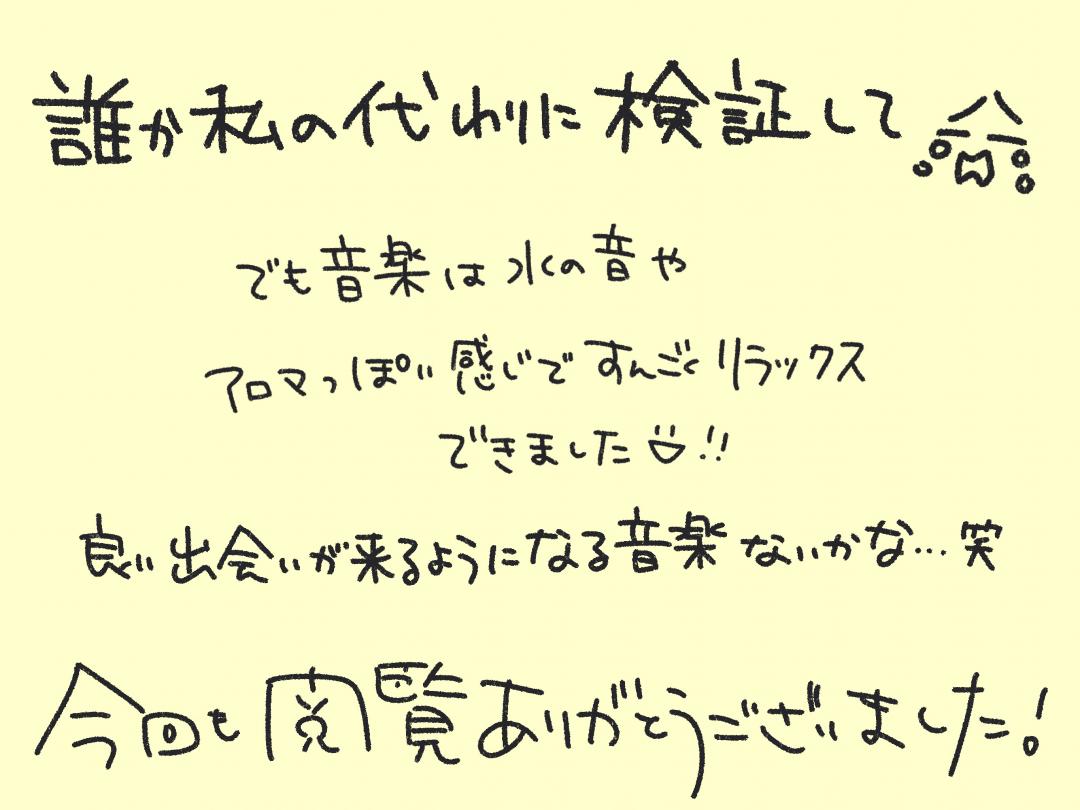 誰か私の代わりに検証して
でも音楽は水の音や
アロマっぽい感じですんごくリラックス
できました!!
良い出会いが来るようになる音楽ないかな…笑
今回も閲覧ありがとうございました!